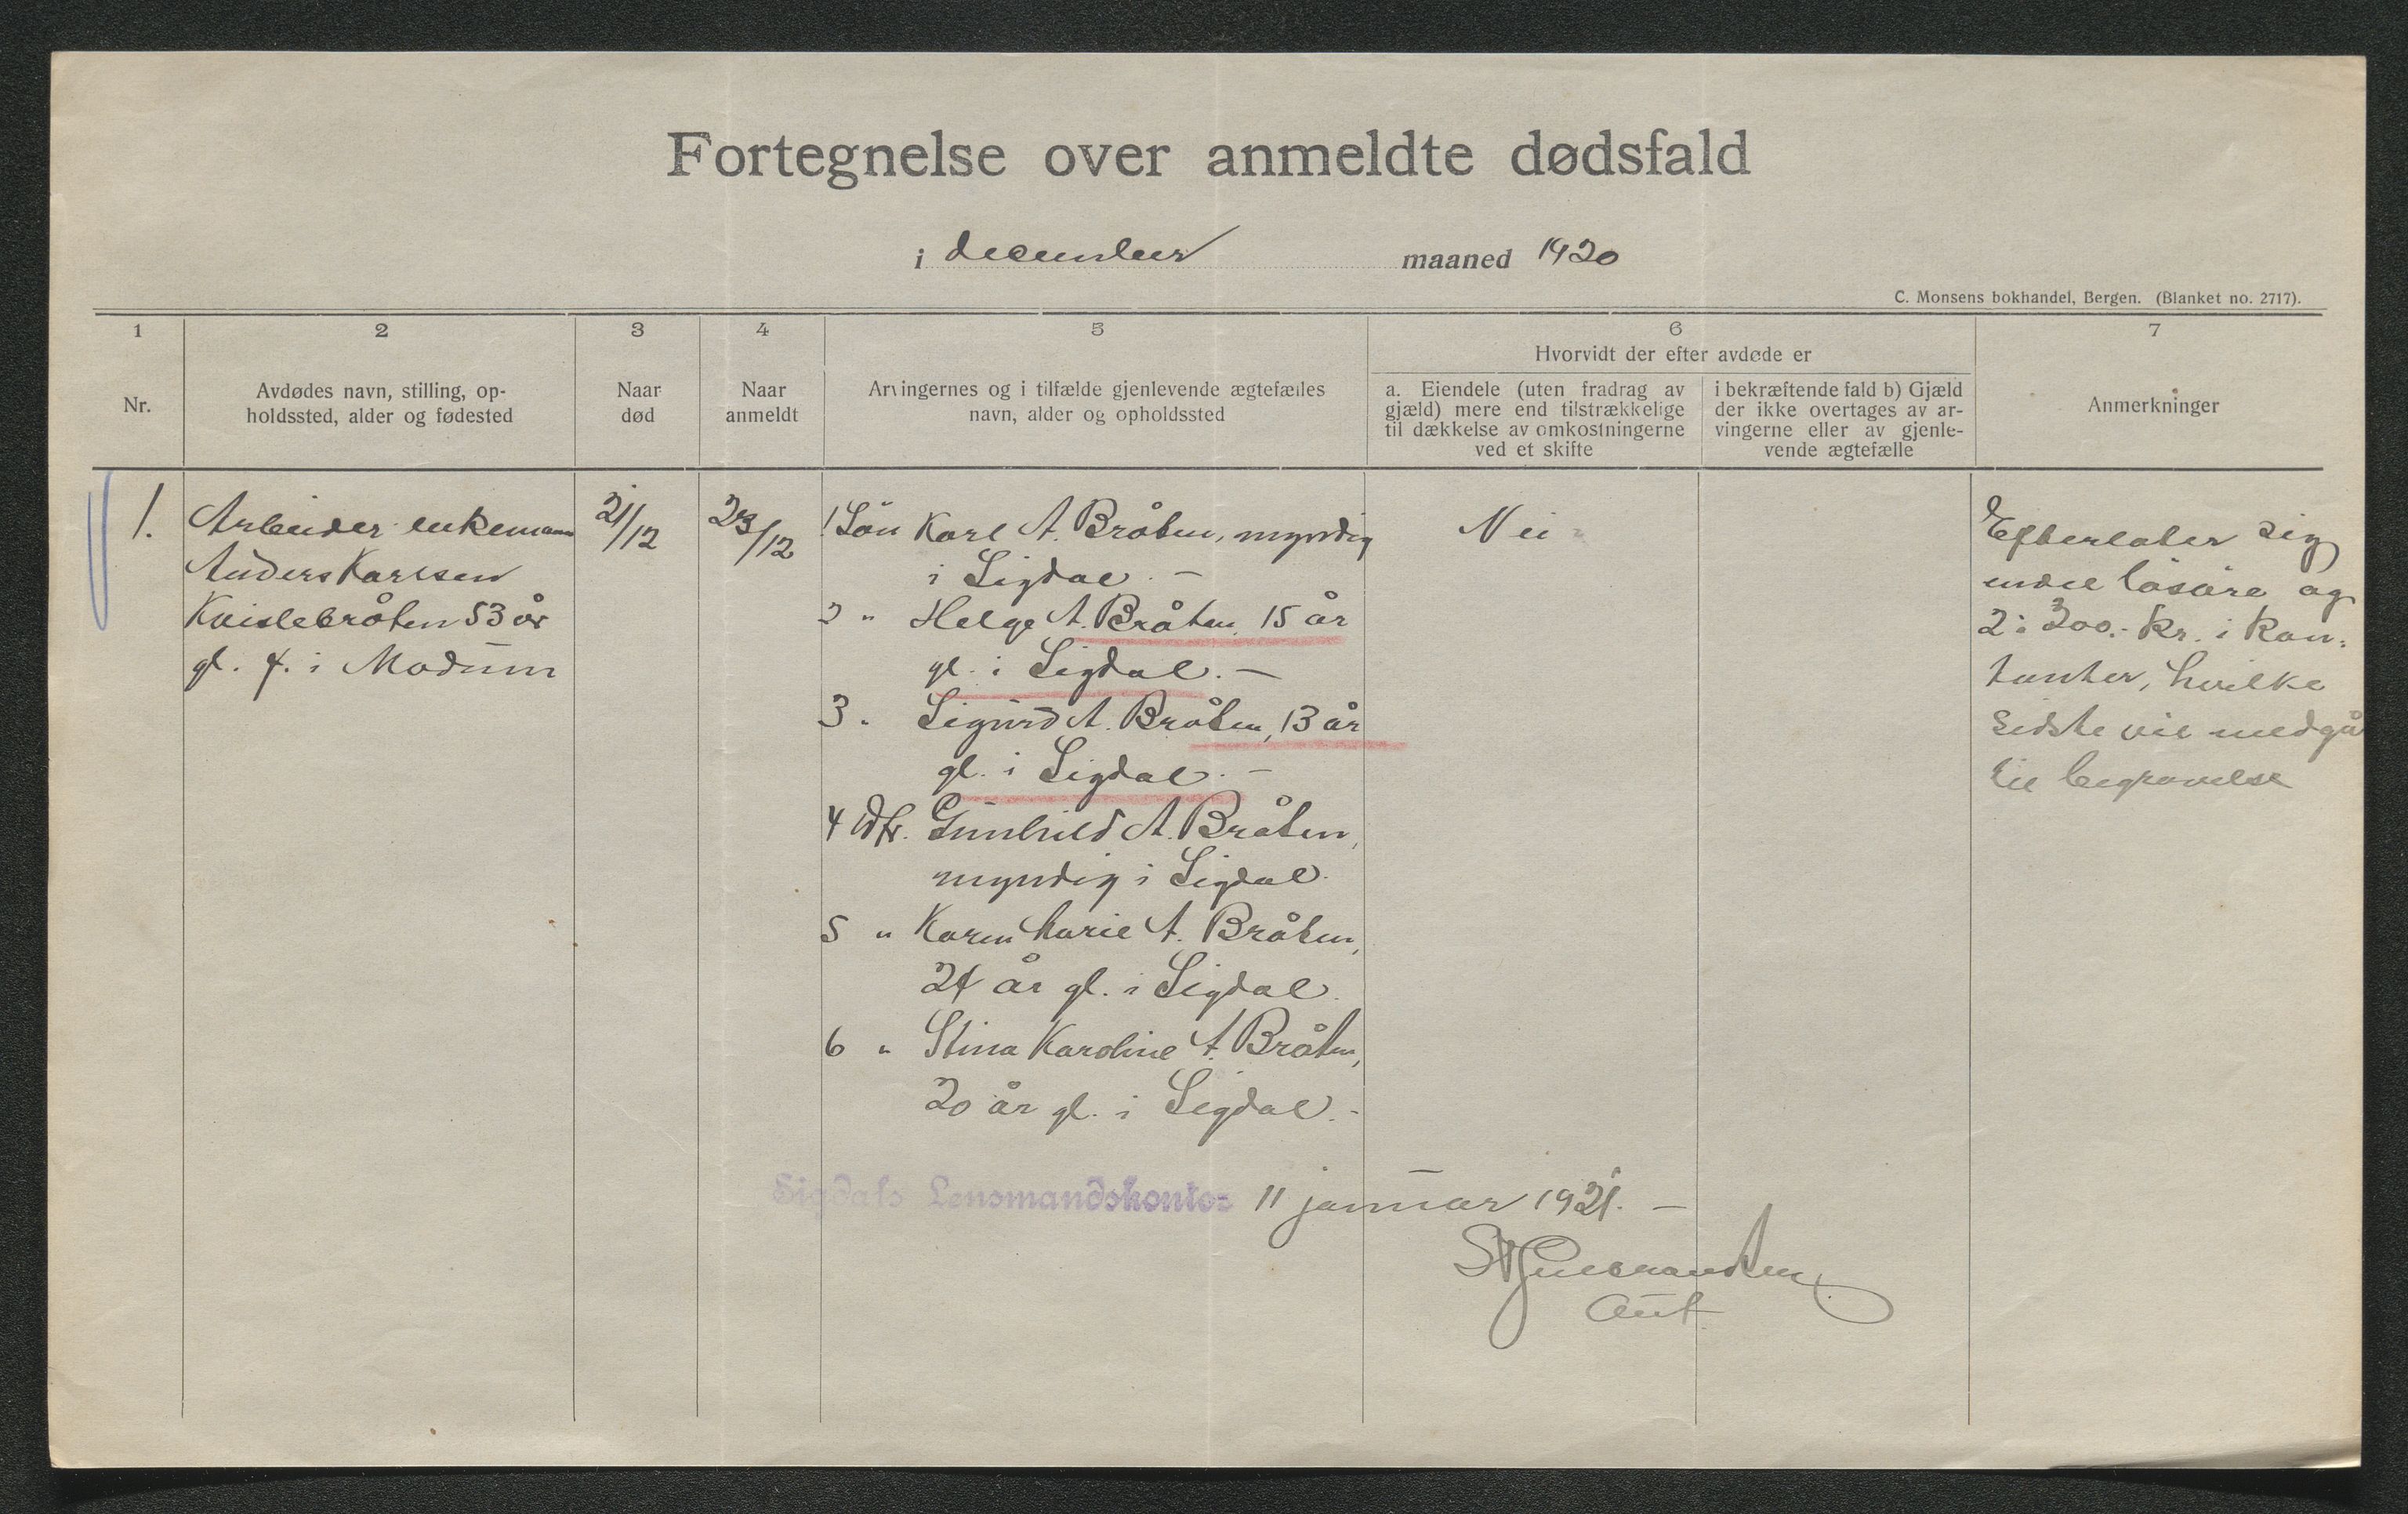 Fortegnelse over anmeldte dødsfald
i december maaned 1920
C. Monsens bokhandel, Bergen. (Blanket no. 2717).
1
Nr.
2
Avdødes navn, stilling, op-
holdssted, alder og fødested
3
Naar
død
4
Naar
anmeldt
5
Arvingernes og i tilfælde gjenlevende ægtefælles
navn, alder og opholdssted
6
Hvorvidt der efter avdøde er
a. Eiendele (uten fradrag av
gjæld) mere end tilstrækkelige
til dækkelse av omkostningerne
ved et skifte
i bekræftende fald b) Gjæld
der ikke overtages av ar-
vingerne eller av gjenle-
vende ægtefælle
7
Anmerkninger
1.
Arbeider enkemann
Anders Karlsen
53 år
gl. f. i Modum
21/12
23/12
1 Sön Karl A. Bråten, myndig
i Sigdal. —
2 " Helge A. Bråten, 15 år
gl. i Sigdal. —
3 " Sigurd A. Bråten, 13 år
gl. i Sigdal. —
4 Dtr. Gunhild A. Bråten,
myndig i Sigdal.
5 " Karen Marie A. Bråten,
24 år gl. i Sigdal.
6 " Stina Karoline A. Bråten,
20 år gl. i Sigdal. -
Nei
Efterlater sig
endel lösöre og
2 à 300.- kr. i kon-
tanter, hvilke
sidste vil medgå
til begravelse
Sigdals Lensmandskontor 11 januar 1921. —